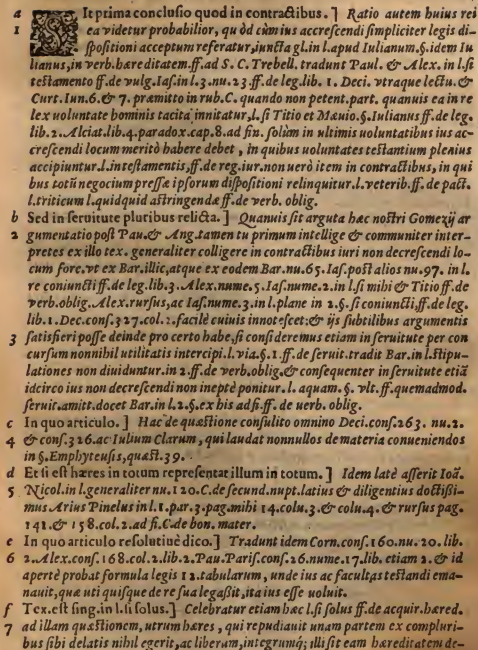 a It prima conclusio quod in contractibus. ] Ratio autem huius rei
1 ea videtur probabilior, quòd cùm ius accrescendi simpliciter legis di-
spositioni acceptum referatur, iuncta gl. in l. apud Iulianum. §. idem Iu
lianus, in verb. hæreditatem. ff. ad S. C. Trebell. tradunt Paul. & Alex. in l. si
testamento ff. de vulg. Ias. in l. 3. nu. 23. ff. de leg. lib. 1. Deci. vtraque lectu. &
Curt. Iun. 6. & 7. præmitto in rub. C. quando non petent. part. quanuis ea in re
lex voluntate hominis tacita innitatur, l. si Titio et Mæuio. §. Iulianus ff. de leg.
lib. 2. Alciat. lib. 4. paradox. cap. 8. ad fin. solùm in vltimis voluntatibus ius ac-
crescendi locum meritò habere debet, in quibus voluntates testantium plenius
accipiuntur. l. in testamentis, ff. de reg. iur. non uerò item in contractibus, in qui
bus totū negocium presse ipsorum dispositioni relinquitur. l. veterib. ff. de pact.
l. triticum l. quidquid astringendæ ff. de verb. oblig.
b Sed in seruitute pluribus relicta. ] Quanuis sit arguta hæc nostri Gomezij ar
2 gumentatio post Pau. & Ang. tamen tu primum intellige & communiter inter-
pretes ex illo tex. generaliter colligere in contractibus iuri non decrescendi lo-
cum fore. vt ex Bar. illic, atque ex eodem Bar. nu. 65. Ias. post alios nu. 97. in l.
re coniuncti ff. de leg. lib. 3. Alex. nume. 5. Ias. nume. 2. in l. si mihi & Titio ff. de
verb. oblig. Alex. rursus, ac Ias. nume. 3. in l. plane in 2. §. si coniuncti, ff. de leg.
lib. 1. Dec. cons. 327. col. 2. facilè cuiuis innotescet: & ijs subtilibus argumentis
3 satisfieri posse deinde pro certo habe, si consideremus etiam in seruitute per con
cursum nonnihil utilitatis intercipi. l. via. §. 1. ff. de seruit. tradit Bar. in l. stipu-
lationes non diuiduntur. in 2. ff. de verb. oblig. & consequenter in seruitute etiā
idcirco ius non decrescendi non ineptè ponitur. l. aquam. §. vlt. ff. quemadmod.
seruit. amitt. docet Bar. in l. 2. §. ex his ad fi. ff. de uerb. oblig.
c In quo articulo. ] Hac de quæstione consulito omnino Deci. cons. 263. nu. 2.
4 & cons. 326. ac Iulium Clarum, qui laudat nonnullos de materia conueniendos
in §. Emphyteusis, quæst. 39.
d Et si est hæres in totum repræsentat illum in totum. ] Idem latè asserit Ioā.
5 Nicol. in l. generaliter nu. 120. C. de secund. nupt. latius & diligentius doctissi-
mus Arius Pinelus in l. 1. par. 3. pag. mihi 14. colu. 3. & colu. 4. & rursus pag.
141. & 158. col. 2. ad fi. C. de bon. mater.
e In quo articulo resolutiuè dico. ] Tradunt idem Corn. cons. 160. nu. 20. lib.
6 2. Alex. cons. 168. col. 2. lib. 2. Pau. Paris. cons. 26. nume. 17. lib. etiam 2. & id
apertè probat formula legis 12. tabularum, unde ius ac facultas testandi ema-
nauit, quæ uti quisque de re sua legaßit, ita ius esse voluit.
f Tex. est sing. in l. si solus. ] Celebratur etiam hæc l. si solus ff. de acquir. hæred.
7 ad illam quæstionem, utrum hæres, qui repudiauit unam partem ex compluri-
bus sibi delatis nihil egerit, ac liberum, integrumq; illi sit eam hæreditatem de-